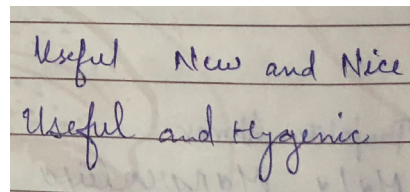 Useful New and Nice
Useful and Hygenic